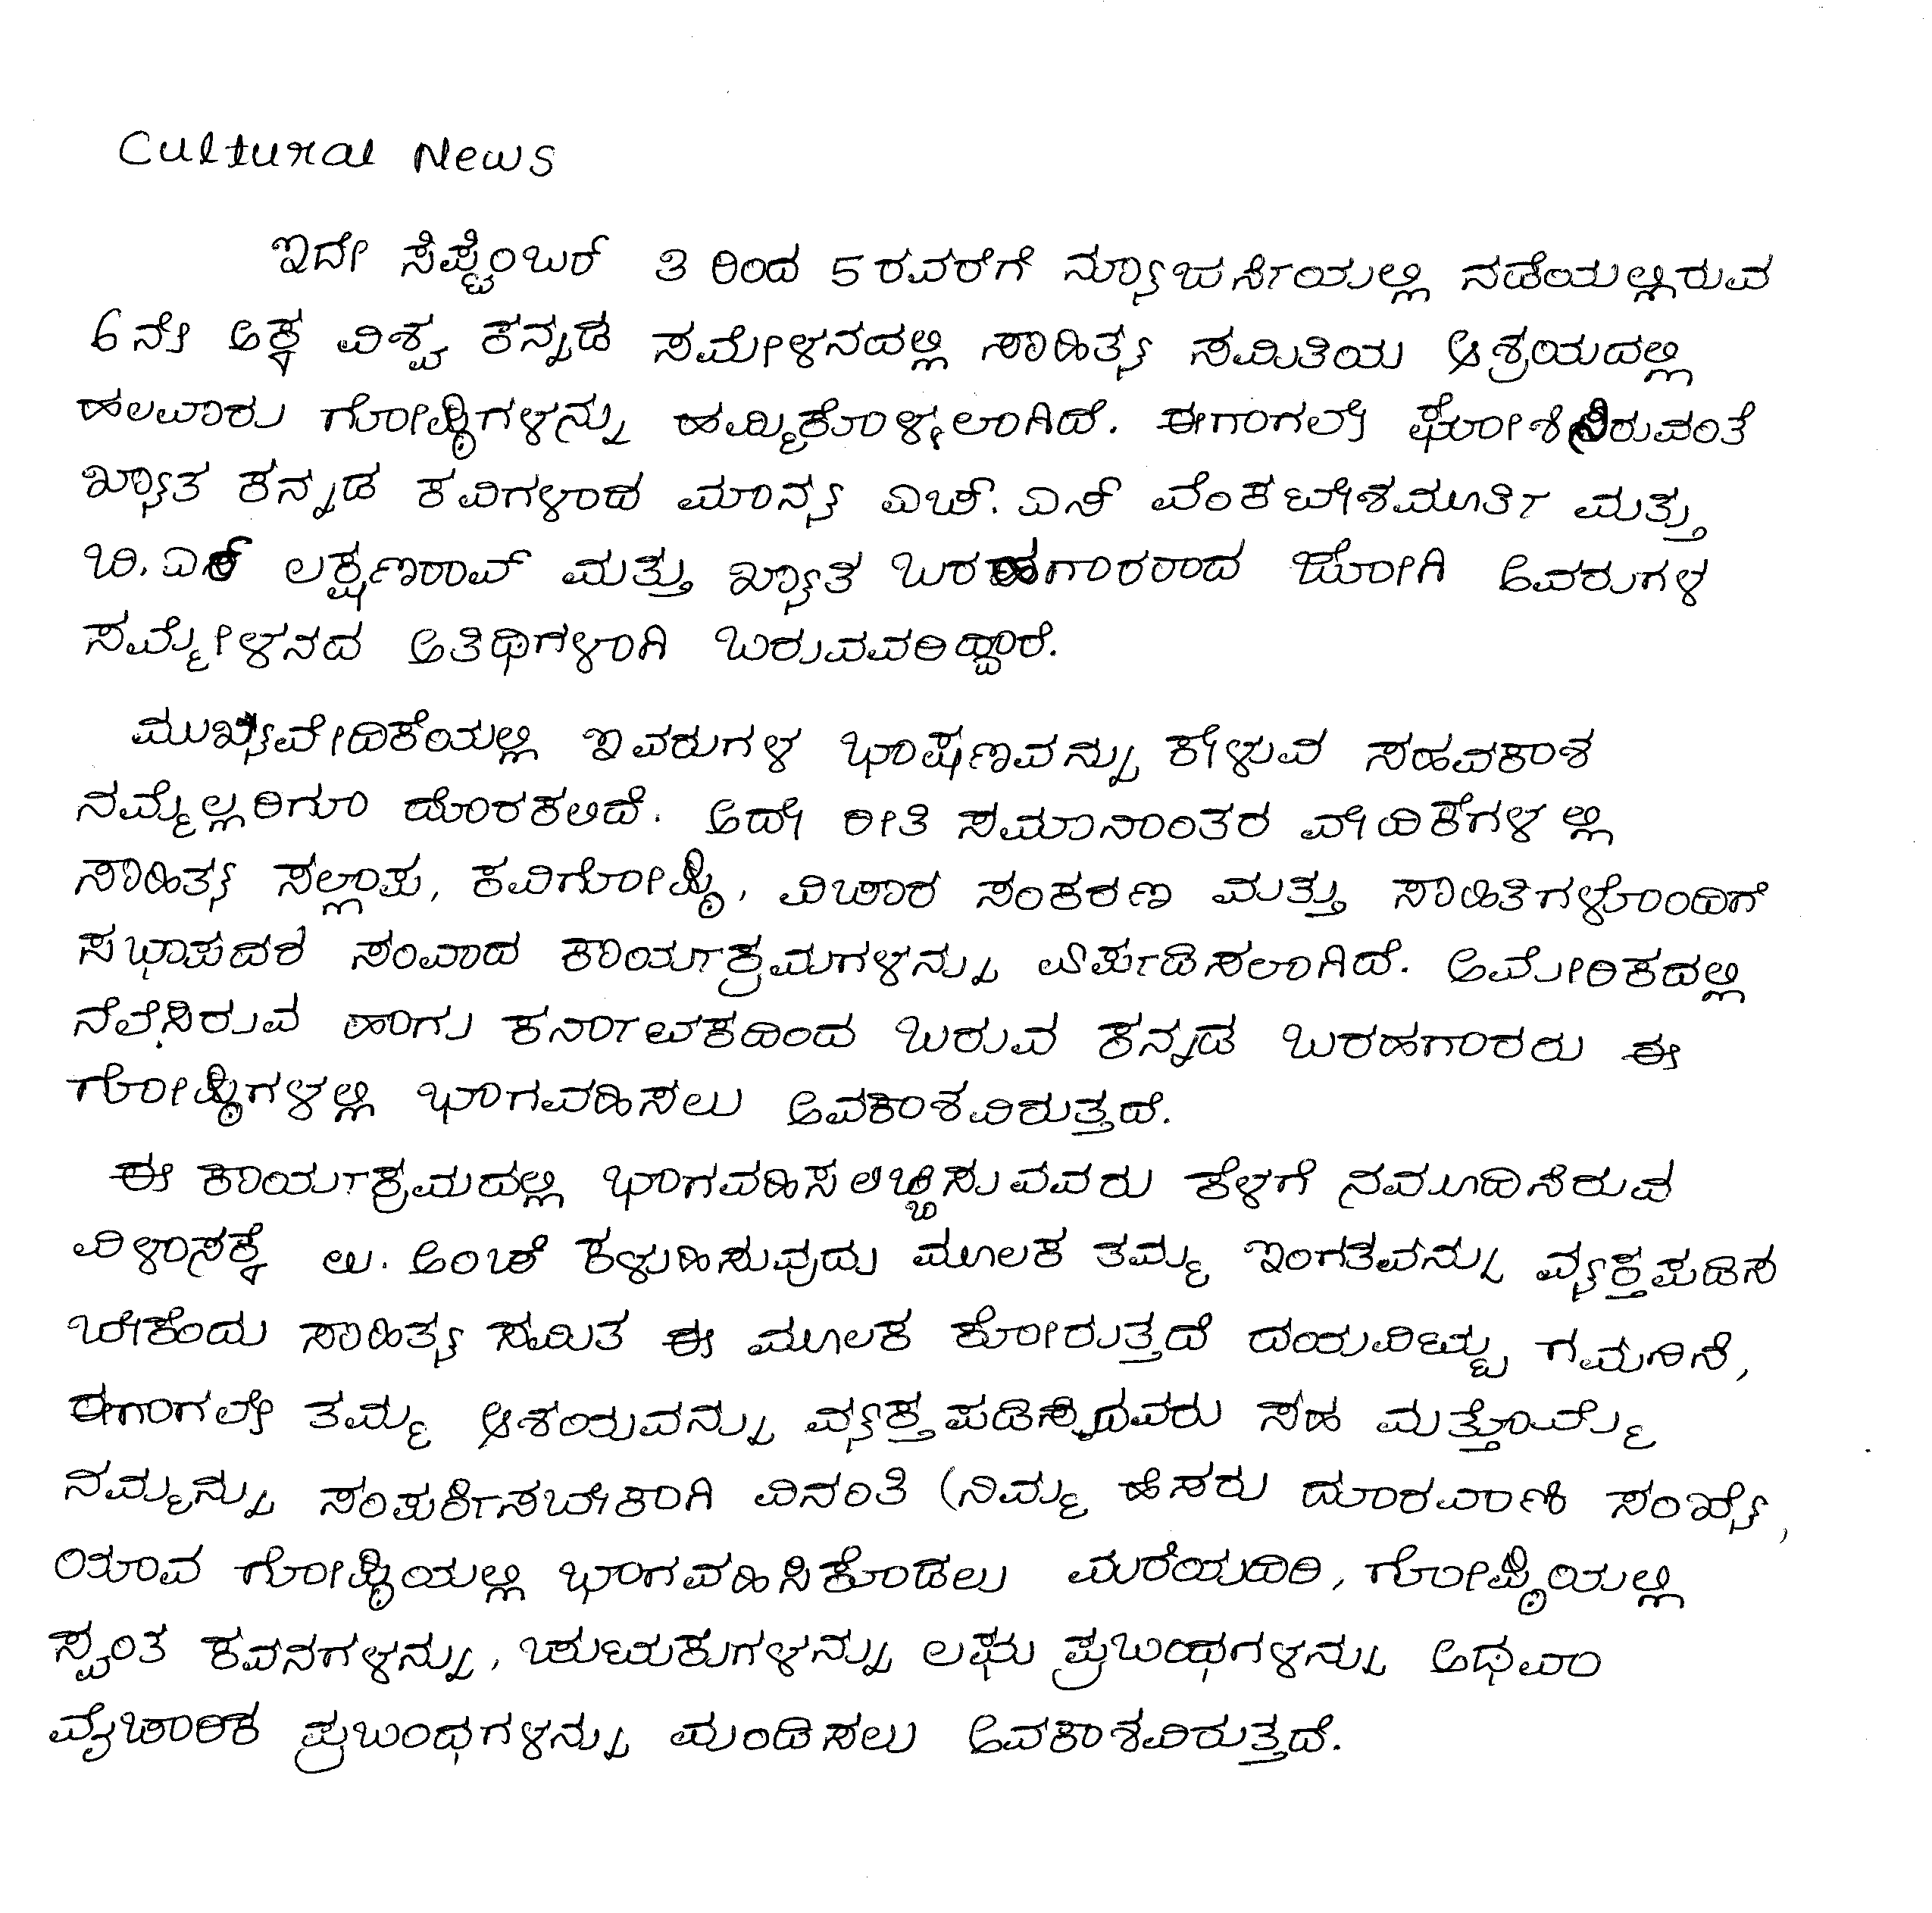 Cultural News
ಇದೇ ಸೆಪ್ಟೆಂಬರ್ 3 ರಿಂದ 5ರವರೆಗೆ ನ್ಯೂಜರ್ಸಿಯಲ್ಲಿ ನಡೆಯಲ್ಲಿರುವ
6ನೇ ಅಕ್ಕ ವಿಶ್ವ ಕನ್ನಡ ಸಮೇಳನದಲ್ಲಿ ಸಾಹಿತ್ಯ ಸಮಿತಿಯ ಆಶ್ರಯದಲ್ಲಿ
ಹಲವಾರು ಗೋಷ್ಠಿಗಳನ್ನು ಹಮ್ಮಿಕೊಳ್ಳಲಾಗಿದೆ. ಈಗಾಗಲೇ ಘೋಶಿಸಿರುವಂತೆ
ಖ್ಯಾತ ಕನ್ನಡ ಕವಿಗಳಾದ ಮಾನ್ಯ ಎಚ್. ಎಸ್ ವೆಂಕಟೇಶಮೂರ್ತಿ ಮತ್ತು
ಬಿ. ಎಸ್ ಲಕ್ಷ್ಮಣರಾವ್ ಮತ್ತು ಖ್ಯಾತಿ ಬರಹಗಾರರಾದ ಜೋಗಿ ಅವರುಗಳ
ಸಮ್ಮೇಳನದ ಅತಿಥಿಗಳಾಗಿ ಬರುವವರಿದ್ದಾರೆ.
ಮುಖ್ಯವೇದಿಕೆಯಲ್ಲಿ ಇವರುಗಳ ಭಾಷಣವನ್ನು ಕೇಳುವ ಸಹವಕಾಶ
ನಮ್ಮೆಲ್ಲರಿಗೂ ದೊರಕಲಿದೆ. ಅದೇ ರೀತಿ ಸಮಾನಾಂತರ ವೇದಿಕೆಗಳಲ್ಲಿ
ಸಾಹಿತ್ಯ ಸಲ್ಲಾಪ, ಕವಿಗೋಷ್ಠಿ, ವಿಚಾರ ಸಂಕರಣ ಮತ್ತು ಸಾಹಿತಿಗಳೊಂದಿಗೆ
ಸಭಾಪದರ ಸಂವಾದ ಕಾರ್ಯಕ್ರಮಗಳನ್ನು ಏರ್ಪಡಿಸಲಾಗಿದೆ. ಅಮೇರಿಕದಲ್ಲಿ
ನೆಲೆಸಿರುವ ಹಾಗು ಕರ್ನಾಟಕದಿಂದ ಬರುವ ಕನ್ನಡ ಬರಹಗಾರರು ಈ
ಗೋಷ್ಠಿಗಳಲ್ಲಿ ಭಾಗವಹಿಸಲು ಅವಕಾಶವಿರುತ್ತದೆ.
ಈ ಕಾರ್ಯಕ್ರಮದಲ್ಲಿ ಭಾಗವಹಿಸಲಿಚ್ಛಿಸುವವರು ಕೆಳಗೆ ನಮೂದಿಸಿರುವ
ವಿಳಾಸಕ್ಕೆ ಅಂಚೆ ಕಳುಹಿಸುವುದು ಮೂಲಕ ತಮ್ಮ ಇಂಗತವನ್ನು ವ್ಯಕ್ತಪಡಿಸ
ಬೇಕೆಂದು ಸಾಹಿತ್ಯ ಸಮಿತ ಈ ಮೂಲಕ ಕೋರುತ್ತದೆ ದಯವಿಟ್ಟು ಗಮನಿಸಿ,
ಈಗಾಗಲೇ ತಮ್ಮ ಆಶಯವನ್ನು ವ್ಯಕ್ತಪಡಿಸಿದವರು ಸಹ ಮತ್ತೊಮ್ಮೆ
ನಮ್ಮನ್ನು ಸಂಪರ್ಕಿಸಬೇಕಾಗಿ ವಿನಂತಿ (ನಿಮ್ಮ ಹೆಸರು ದೂರವಾಣಿ ಸಂಖ್ಯೆ,
ಯಾವ ಗೋಷ್ಠಿಯಲ್ಲಿ ಭಾಗವಹಿಸಿಕೊಡಲು ಮರೆಯದಿರಿ, ಗೋಷ್ಠಿಯಲ್ಲಿ
ಸ್ವಂತ ಕವನಗಳನ್ನು, ಚುಟುಕುಗಳನ್ನು ಲಘು ಪ್ರಬಂಧಗಳನ್ನು ಅಥವಾ
ವೈಚಾರಿಕ ಪ್ರಬಂಧಗಳನ್ನು ಮಂಡಿಸಲು ಅವಕಾಶವಿರುತ್ತದೆ.